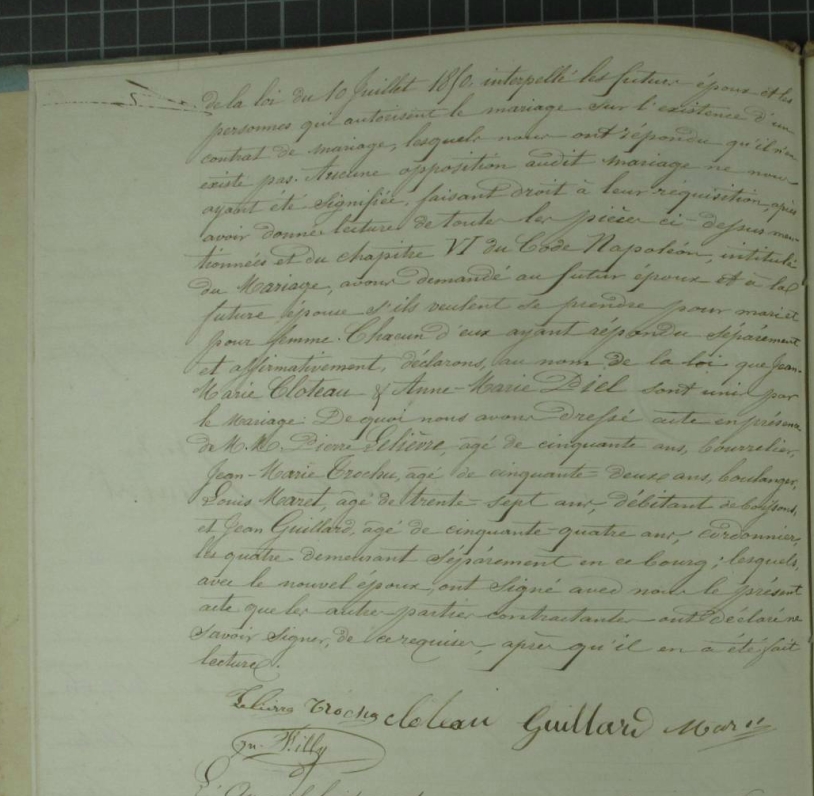 de la loi du 10 Juillet 1850, interpellé les futurs époux et les
personnes qui autorisent le mariage sur l'existence d'un
contrat de mariage, lesquels nous ont répondu qu'il n'en
existe pas. Aucune opposition audit mariage ne nous
ayant été signifiée, faisant droit à leur requisition, après
avoir donné lecture de toutes les pièces ci-dessus men
tionnées et du chapitre VI du Code Napoléon, intitulé
du Mariage, avons demandé au futur époux et à la
future épouse s'ils veulent se prendre pour mari et
pour femme. Chacun d'eux ayant répondu séparément
et affirmativement, déclarons, au nom de la loi que Jean-
Marie Cloteau & Anne-Marie Diel sont unis par
le Mariage. De quoi nous avons dressé acte en présence
de M.M. Pierre Lelièvre, agé de cinquante ans, bourrelier,
Jean-Marie Trochu, agé de cinquante-deux ans, boulanger,
Louis Maret, agé de trente-sept ans, débitant de boissons,
et Jean Guillard, agé de cinquante-quatre ans, cordonnier,
les quatre demeurant séparément en ce bourg ; lesquels,
avec le nouvel époux, ont signé avec nous le présent
acte que les autres parties contractantes ont déclaré ne
savoir signer, de ce requises, après qu'il en a été fait
lecture.
Lelièvre Trochu Cloteau Guillard
Filly